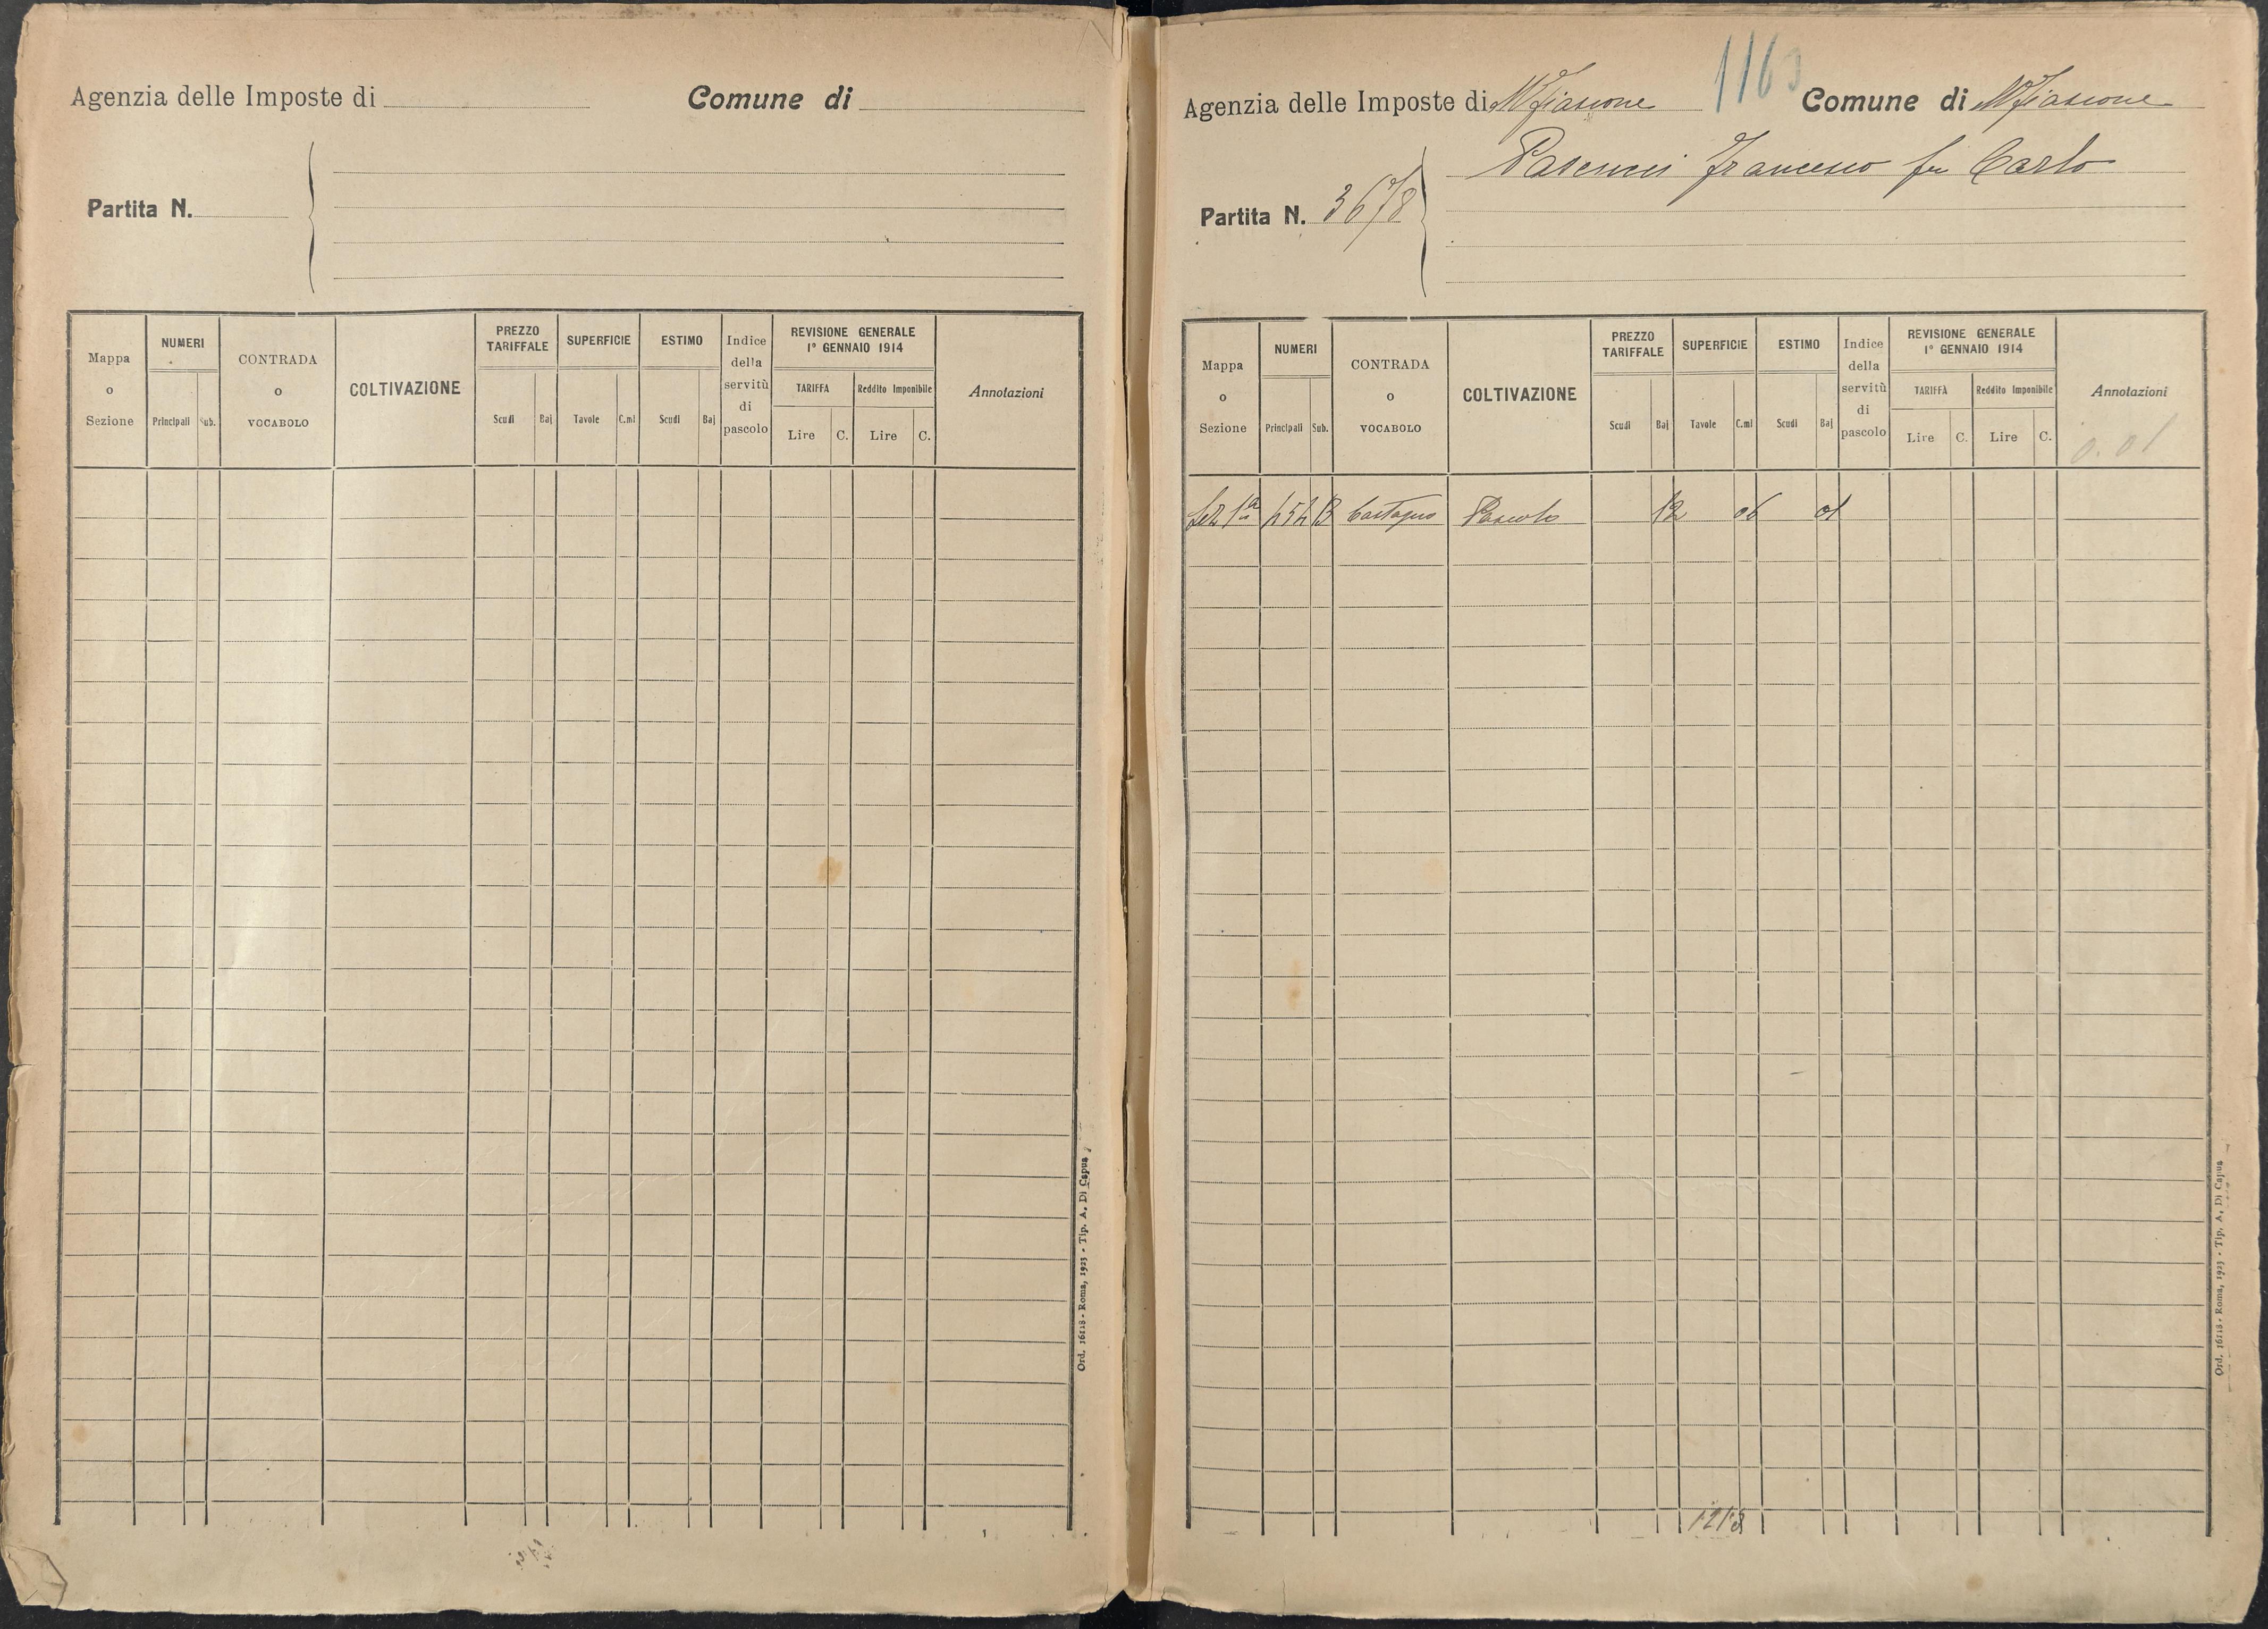 Agenzia delle Imposte di
Comune di
Partita N.
Mappa o Sezione
NUMERI
Principali Sub.
CONTRADA o VOCABOLO
COLTIVAZIONE
PREZZO TARIFFALE
Scudi Baj
SUPERFICIE
Tavole C.mi
ESTIMO
Scudi Baj
Indice della servitù di pascolo
REVISIONE GENERALE
1° GENNAIO 1914
TARIFFA
Lire C.
Reddito Imponibile
Lire C.
Annotazioni
Ord. 16118 - Roma, 1923 - Tip. A. Di Capua
1163
Agenzia delle Imposte di Mfiascone
Comune di Mfiascone
Pascucci Francesco fu Carlo
Partita N. 3678
Mappa o Sezione
NUMERI
Principali Sub.
CONTRADA o VOCABOLO
COLTIVAZIONE
PREZZO TARIFFALE
Scudi Baj
SUPERFICIE
Tavole C.mi
ESTIMO
Scudi Baj
Indice della servitù di pascolo
REVISIONE GENERALE
1° GENNAIO 1914
TARIFFA
Lire C.
Reddito Imponibile
Lire C.
Annotazioni
0.01
Sez 1a Castagno Pascolo 12 06 01
Ord. 16118 - Roma, 1923 - Tip. A. Di Capua